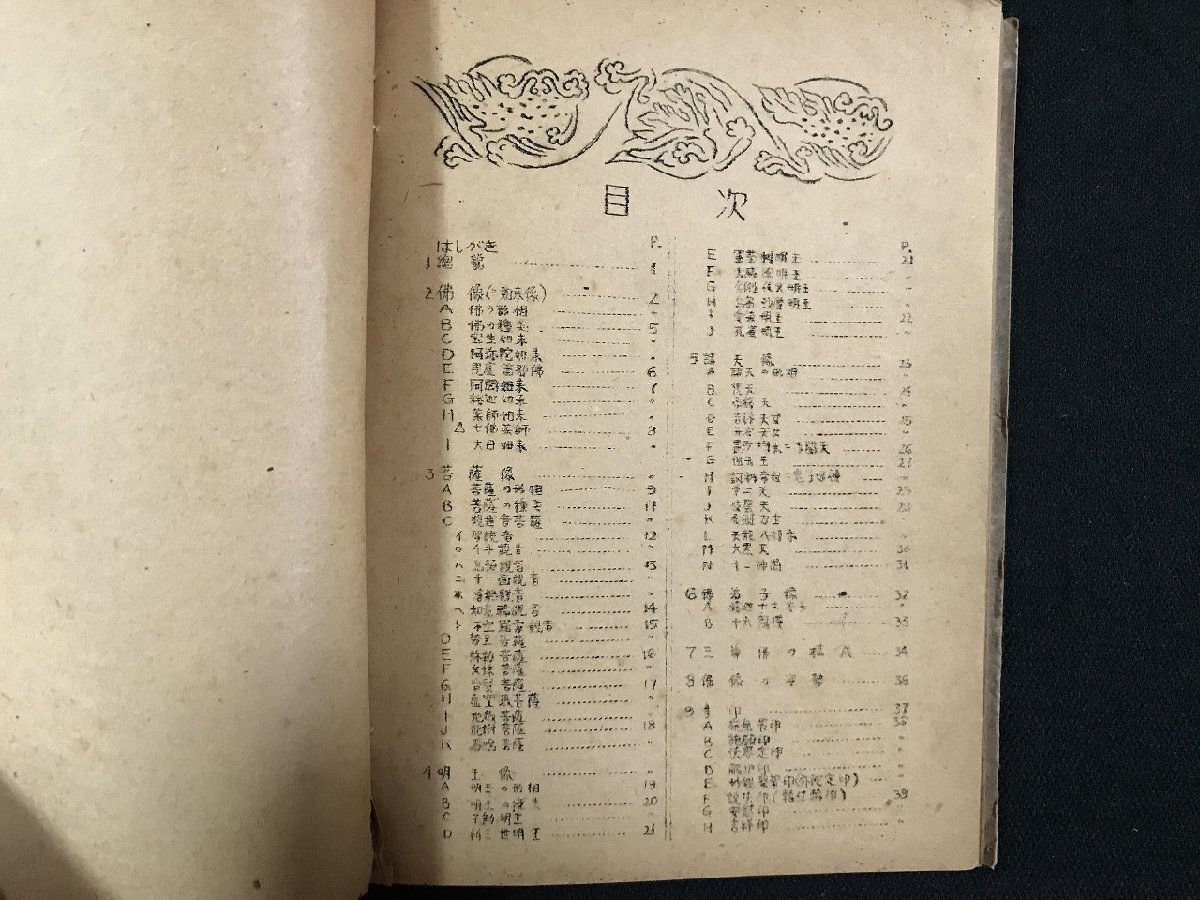 目次
はしがき P.
1 總説 1
2 佛像(=如来像) 2
A 佛の形相 〃
B 佛の種類 5
C 宝生如来 〃
D 阿弥陀如来 〃
E 毘盧遮那佛 6
F 阿閦如来 7
G 釋迦如来 〃
H 薬師如来 〃
△ 七佛薬師 8
I 大日如来 〃
3 菩薩像 〃
A 菩薩の形相 9
B 菩薩の種類 11
C 観世音菩薩 〃
イ 聖観音 12
ロ 千手観音 〃
ハ 馬頭観音 13
ニ 十一面観音 〃
ホ 准胝観音 〃
ヘ 如意輪観音 14
ト 不空羂索観音 15
D 菩薩
E 弥勒菩薩 16
F 文殊菩薩 〃
G 普賢菩薩 17
H 虚空蔵菩薩 〃
I 地蔵菩薩 〃
J 菩薩 18
K 馬鳴菩薩 〃
4 明王像 〃
A 明王の形相 19
B 明王の種類 20
C 不動明王 〃
D 降三世明王 21
P.
E 軍荼利明王 21
F 大威徳明王 〃
G 金剛夜叉明王 〃
H 明王 〃
I 愛染明王 22
J 孔雀明王 〃
5 諸天像 23
A 諸天の形相 〃
B 梵天 24
C 帝釋天 〃
D 吉祥天女 25
E 弁才天女 〃
F 毘沙門天=多聞天 26
G 四天王 27
H 訶梨帝母=鬼子母神 〃
I 十二天 28
J 伎藝天 28
K 金剛力士 〃
L 天龍八部衆 〃
M 大黒天 30
N 十二神将 31
6 佛弟子像 32
A 〃
B 十六羅漢 33
7 三尊佛の様式 34
8 佛像の姿勢 36
9 手印 37
A 施無畏印 38
B 施願印 〃
C 法界定印 〃
D 〃
E 妙観察智印(弥陀定印) 〃
F 説法印(轉法輪印) 39
G 安慰印 〃
H 吉祥印 〃